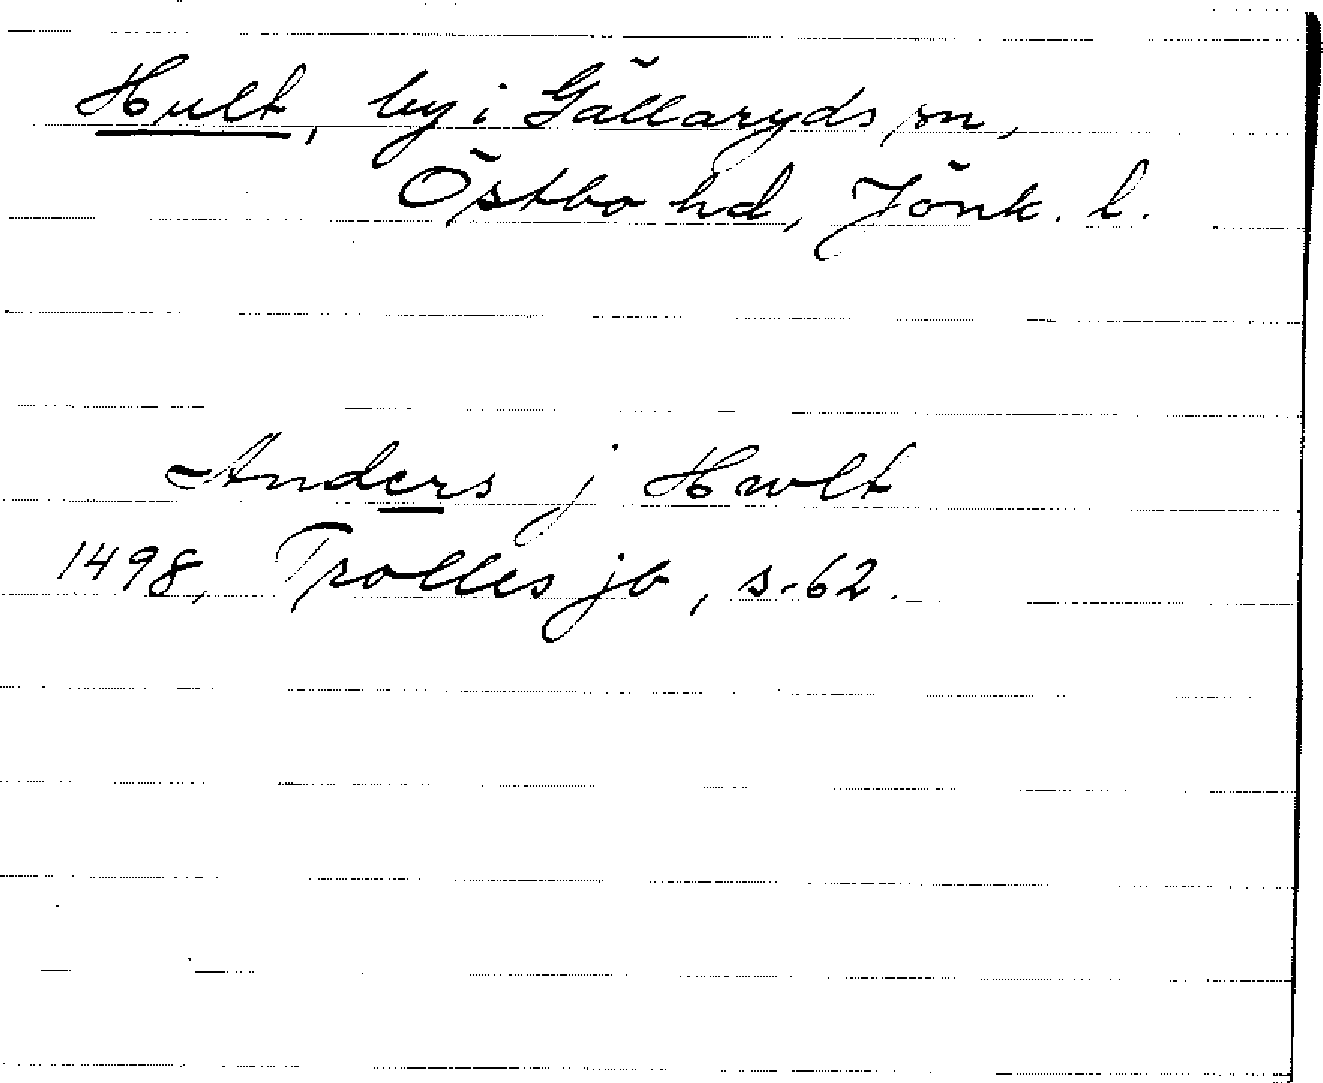 Hult, by i Gällaryds sn,
Östbo hd, Jönk. l.
Anders j Hwlt
1498, Trolles jb, s. 62.